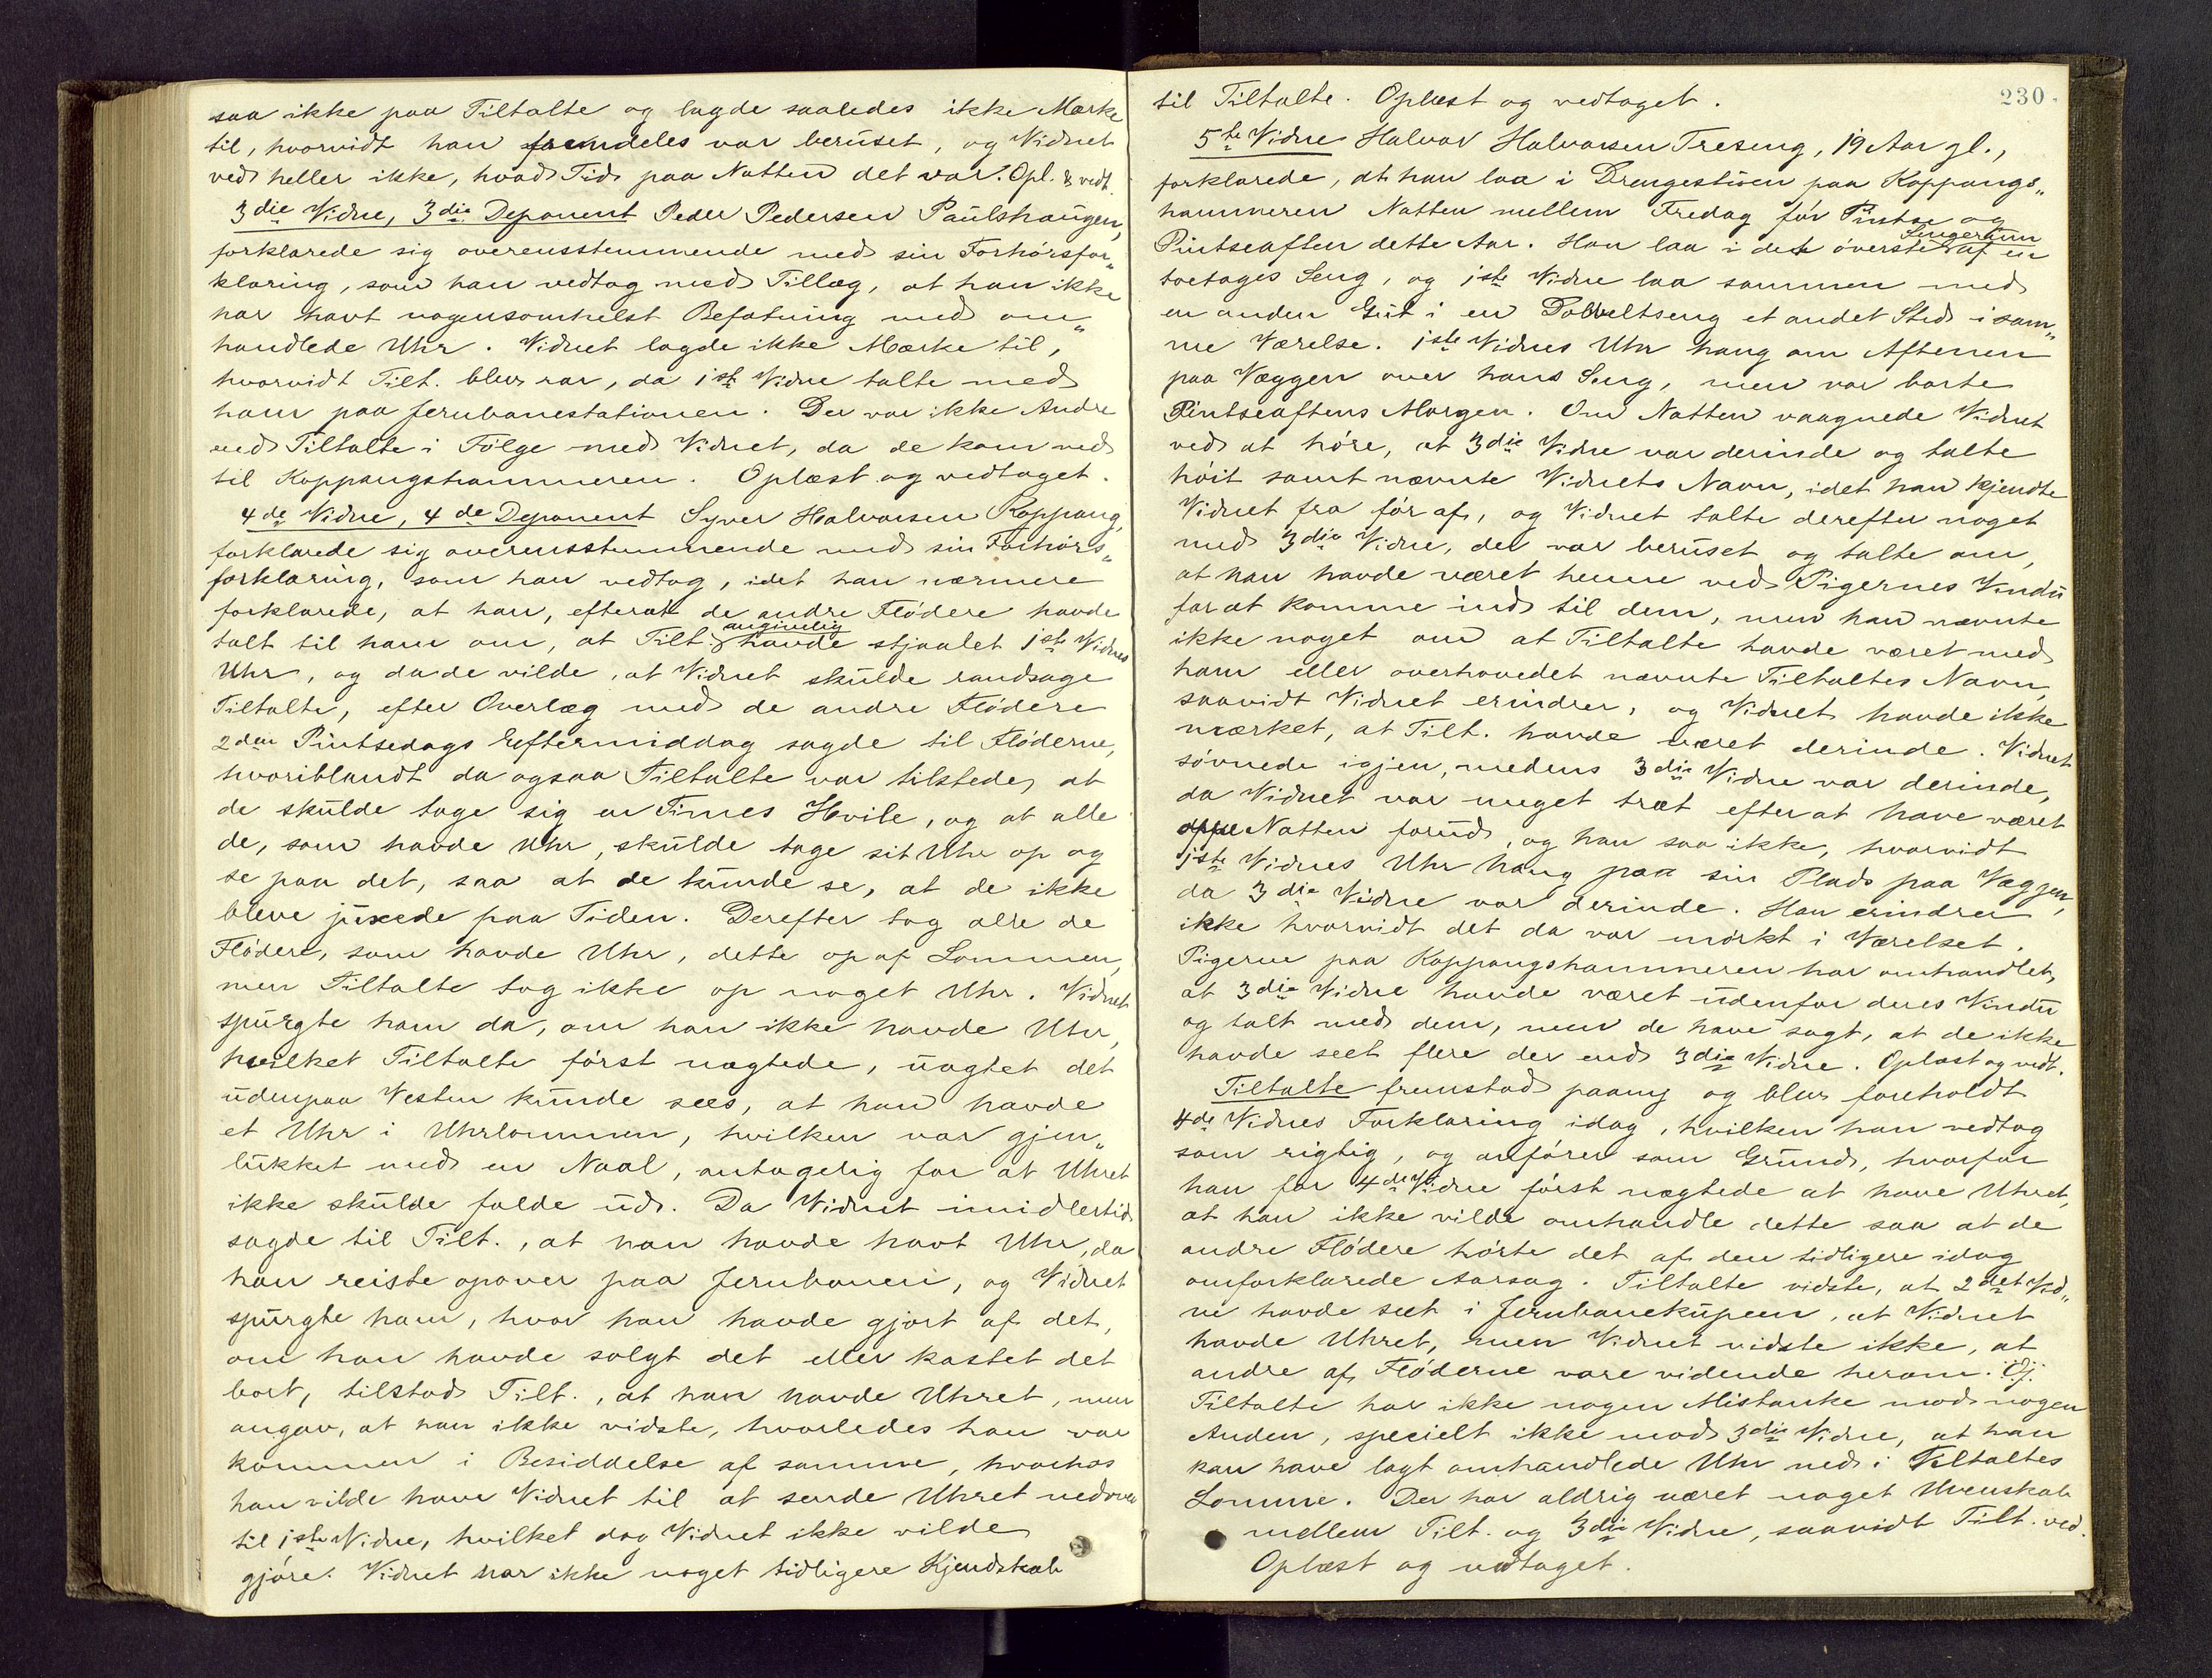 saa ikke paa Tiltalte og lagde saaledes ikke Mærke
til, hvorvidt han fremdeles var beruset, og Vidnet
ved heller ikke, hvad Tid paa Natten det var. Opl. & vedt.
3die Vidne, 3die Deponent Peder Pedersen Paulshaugen,
forklarede sig overensstemmende med sin Forhørsfor„
klaring, som han vedtog med Tillæg, at han ikke
har havt nogensomhelst Befatning med om„
handlede Uhr. Vidnet lagde ikke Mærke til,
hvorvidt Tilt. blev rar, da 1ste Vidne talte med
ham paa Jernbanestationen. Der var ikke Andre
end Tiltalte i Følge med Vidnet, da de kom ned
til Koppangshammeren. Oplæst og vedtaget.
4de Vidne, 4de Deponent Syver Halvorsen Koppang,
forklarede sig overensstemmende med sin Forhørs„
forklaring, som han vedtog, idet han nærmere
forklarede, at han, efterat de andre Flødere havde
talt til ham om, at Tilt. angivelig havde stjaalet 1ste Vidnes
Uhr, og da de vilde, at Vidnet skulde randsage
Tiltalte, efter Overlæg med de andre Flødere
2den Pintsedags Eftermiddag sagde til Fløderne,
hvoriblandt da ogsaa Tiltalte var tilstede, at
de skulde tage sig en Times Hvile, og at alle
de, som havde Uhr, skulde tage sit Uhr op og
se paa det, saa at de kunde se, at de ikke
bleve juxede paa Tiden. Derefter tog alle de
Flødere, som havde Uhr, dette op af Lommen,
men Tiltalte tog ikke op noget Uhr. Vidnet
spurgte ham da, om han ikke havde Uhr,
hvilket Tiltalte først nægtede, uagtet det
udenpaa Vesten kunde sees, at han havde
et Uhr i Uhrlommen, hvilken var gjen„
lukket med en Naal, antagelig for at Uhret
ikke skulde falde ud. Da Vidnet imidlertid
sagde til Tilt., at han havde havt Uhr, da
han reiste opover paa Jernbanen, og Vidnet
spurgte ham, hvor han havde gjort af det,
om han havde solgt det eller kastet det
bort, tilstod Tilt., at han havde Uhret, men
angav, at han ikke vidste, hvorledes han var
kommen i Besiddelse af samme, hvorhos
han vilde have Vidnet til at sende Uhret nedover
til 1ste Vidne, hvilket dog Vidnet ikke vilde
gjøre. Vidnet har ikke noget tidligere Kjendskab
230.
til Tiltalte. Oplæst og vedtaget.
5te Vidne Halvor Halvorsen Treseng, 19 Aar gl.,
forklarede, at han laa i Drengestuen paa Koppangs„
hammeren Natten mellem Fredag før Pintse og
Pintseaften dette Aar. Han laa i det øverste Sengerum af en
toetages Seng, og 1ste Vidne laa sammen med
en anden Gut i en Dobbeltseng et andet Sted i sam„
me Værelse. 1ste Vidnes Uhr hang om Aftenen
paa Væggen over hans Seng, men var borte
Pintseaftens Morgen. Om Natten vaagnede Vidnet
ved at høre, at 3die Vidne var derinde og talte
høit samt nævnte Vidnets Navn, idet han kjendte
Vidnet fra før af, og Vidnet talte derefter noget
med 3die Vidne, der var beruset og talte om,
at han havde været henne ved Pigernes Vindu
for at komme ind til dem, men han nævnte
ikke noget om at Tiltalte havde været med
ham eller overhovedet nævnte Tiltaltes Navn,
saavidt Vidnet erindrer, og Vidnet havde ikke
mærket, at Tilt. havde været derinde. Vidnet
søvnede igjen, medens 3die Vidne var derinde,
da Vidnet var meget træt efter at have været
oppe Natten forud, og han saa ikke, hvorvidt
1ste Vidnes Uhr hang paa sin Plads paa Væggen,
da 3die Vidne var derinde. Han erindrer
ikke hvorvidt det da var mørkt i Værelset.
Pigerne paa Koppangshammeren har omhandlet,
at 3die Vidne havde været udenfor deres Vindu
og talt med dem, men de have sagt, at de ikke
havde seet flere der end 3die Vidne. Oplæst og vedt.
Tiltalte fremstod paany og blev foreholdt
4de Vidnes Forklaring idag, hvilken han vedtog
som rigtig, og anfører som Grund, hvorfor
han for 4de Vidne først nægtede at have Uhret,
at han ikke vilde omhandle dette saa at de
andre Flødere hørte det af den tidligere idag
omforklarede Aarsag. Tiltalte vidste, at 2det Vid„
ne havde seet i Jernbanekupeen, at Vidnet
havde Uhret, men Vidnet vidste ikke, at
andre af Fløderne vare vidende herom.
Tiltalte har ikke nogen Mistanke mod nogen
Anden, specielt ikke mod 3die Vidne, at han
kan have lagt omhandlede Uhr ned i Tiltaltes
Lomme. Der har aldrig været noget Uvenskab
mellem Tilt. og 3die Vidne, saavidt Tilt. ved.
Oplæst og vedtaget.